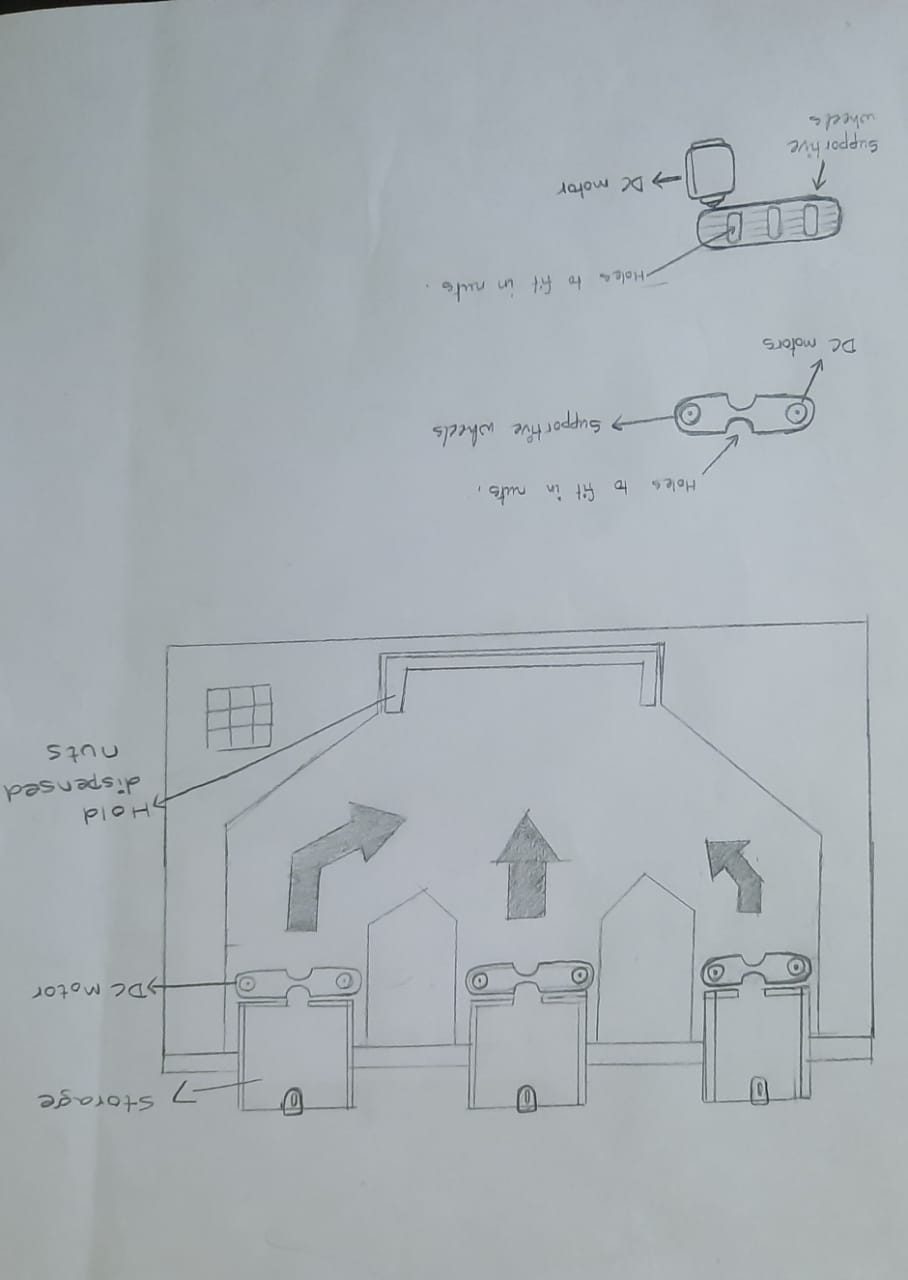 Storage
DC motor
Hold
dispensed
nuts
Holes to fit in nuts.
Supportive wheels
DC motors
Holes to fit in nuts.
DC motor
Supportive
wheels